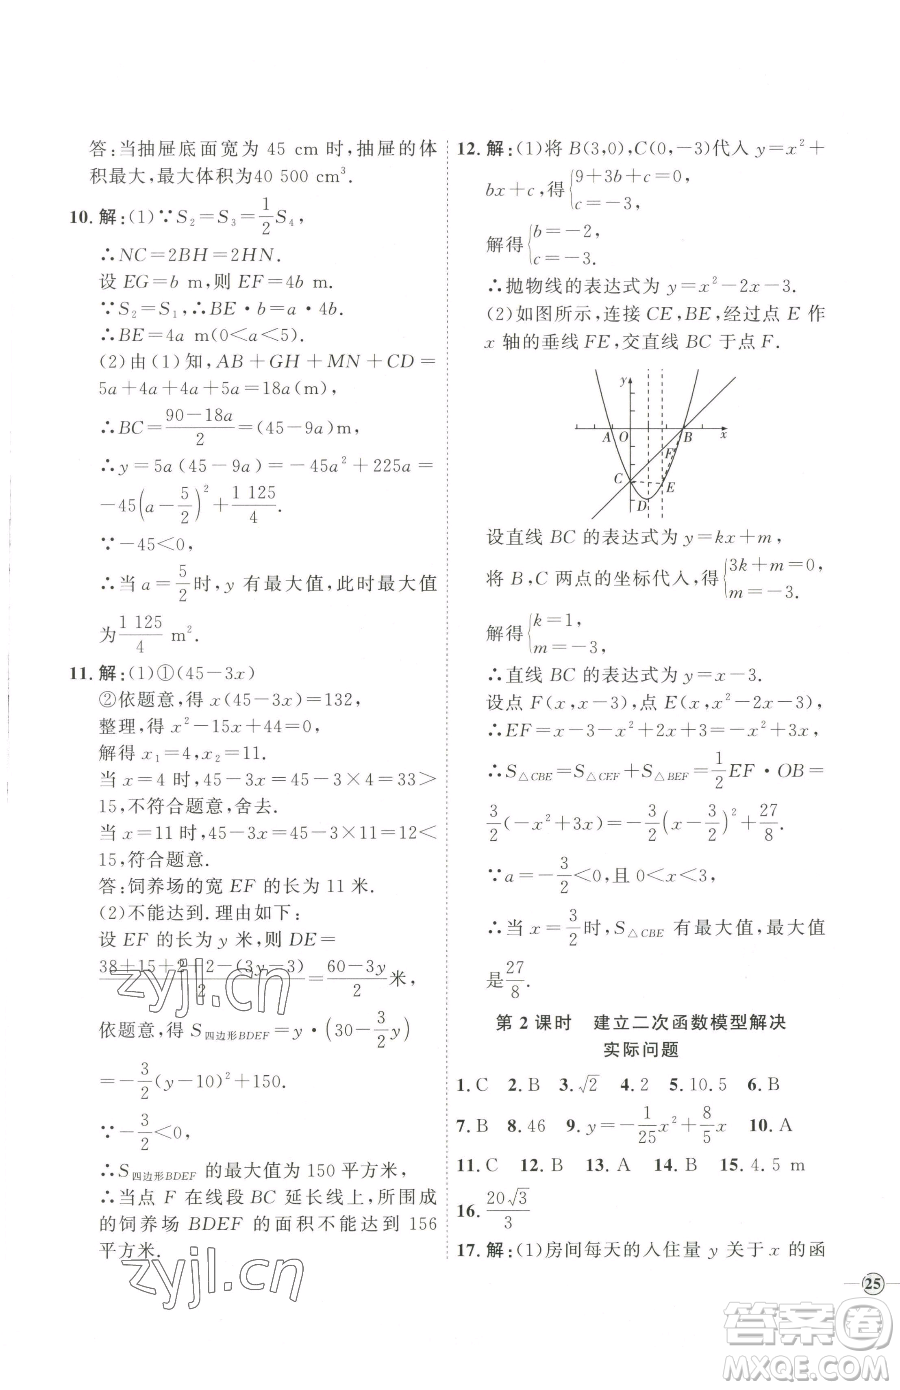 答:当抽屉底面宽为 45 cm 时,抽屉的体
积最大,最大体积为40 500 cm³.
10. 解:(1)∵S₂=S₃=1/2 S₄,
∴NC=2BH=2HN.
设 EG=b m,则 EF=4b m.
∵S₂=S₁,∴BE·b=a·4b.
∴BE=4a m(0<a<5).
(2)由(1)知, AB+GH+MN+CD=
5a+4a+4a+5a=18a(m),
∴BC=(90-18a)/2=(45-9a)m,
∴y=5a(45-9a)=-45a²+225a=
-45(a-5/2)²+1 125/4.
∵-45<0,
∴当 a=5/2 时,y 有最大值,此时最大值
为 1 125/4 m².
11. 解:(1)①(45-3x)
②依题意,得 x(45-3x)=132,
整理,得 x²-15x+44=0,
解得 x₁=4,x₂=11.
当 x=4 时,45-3x=45-3×4=33>
15,不符合题意,舍去.
当 x=11时,45-3x=45-3×11=12<
15,符合题意.
答:饲养场的宽 EF 的长为 11 米.
(2)不能达到.理由如下:
设 EF 的长为 y 米,则 DE=
(38+15+2+2-(3y-3))/2=(60-3y)/2 米,
依题意,得 S四边形BDEF=y·(30-3/2 y)
=-3/2(y-10)²+150.
∵-3/2<0,
∴S四边形BDEF 的最大值为 150 平方米,
∴当点 F 在线段 BC 延长线上,所围成
的饲养场 BDEF 的面积不能达到 156
平方米.
12. 解:(1)将 B(3,0),C(0,-3)代入 y=x²+
bx+c,得{9+3b+c=0,
c=-3,
解得{b=-2,
c=-3.
∴抛物线的表达式为 y=x²-2x-3.
(2)如图所示,连接 CE,BE,经过点 E 作
x 轴的垂线 FE,交直线 BC 于点 F.
y
A O B x
F
C E
D
设直线 BC 的表达式为 y=kx+m,
将 B,C 两点的坐标代入,得{3k+m=0,
m=-3.
解得{k=1,
m=-3.
∴直线 BC 的表达式为 y=x-3.
设点 F(x,x-3),点 E(x,x²-2x-3),
∴EF=x-3-x²+2x+3=-x²+3x,
∴S△CBE=S△CEF+S△BEF=1/2 EF·OB=
3/2(-x²+3x)=-3/2(x-3/2)²+27/8.
∵a=-3/2<0,且 0<x<3,
∴当 x=3/2 时,S△CBE 有最大值,最大值
是 27/8.
第 2 课时 建立二次函数模型解决
实际问题
1. C 2. B 3. √2 4. 2 5. 10.5 6. B
7. B 8. 46 9. y=-1/25 x²+8/5 x 10. A
11. C 12. B 13. A 14. B 15. 4.5 m
16. 20√3/3
17. 解:(1)房间每天的入住量 y 关于 x 的函
25
zyjl.cn
zyjl.cn
答案圈
MXQE.COM